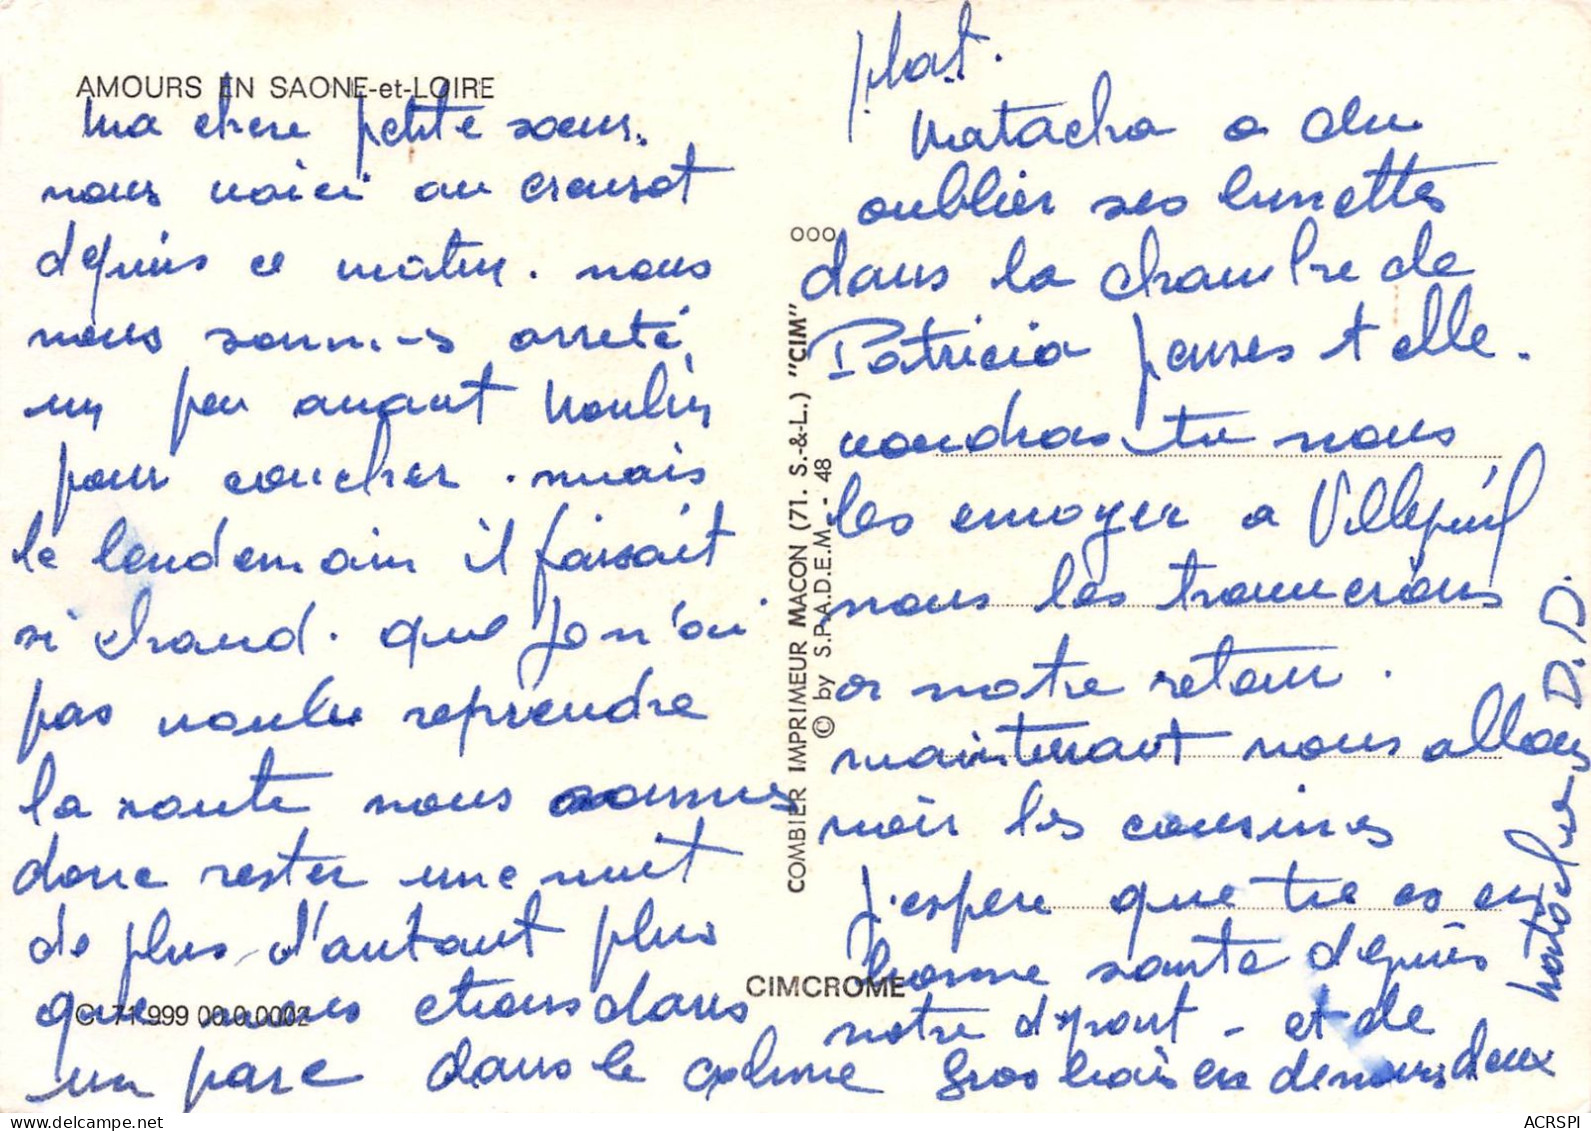 AMOURS EN SAONE-et-LOIRE
Ma chere petite soeur.
nous voici au creusot
depuis ce matin. nous
nous sommes arreté
un peu avant Moulin
pour coucher. mais
le lendemain il faisait
si chaud. que je n'ai
pas voulu reprendre
la route nous sommes
donc rester une nuit
de plus d'autant plus
que nous etions dans
C. 71 999 00 0.0002
un parc dans le calme
plat.
Natacha a du
oublier ses lunettes
dans la chambre de
Patricia penses t elle.
voudras tu nous
les envoyer a Villepreil
nous les trouverons
a notre retour.
maintenant nous allons
voir les cousines
J'espere que tu es en
bonne sante depuis
notre depart - et de
gros baisers de nous deux
Natacha D.D.
ooo
COMBIER IMPRIMEUR MACON (71. S.-&-L.) "CIM"
© by S.P.A.D.E.M. - 48
CIMCROME
ACRSPI